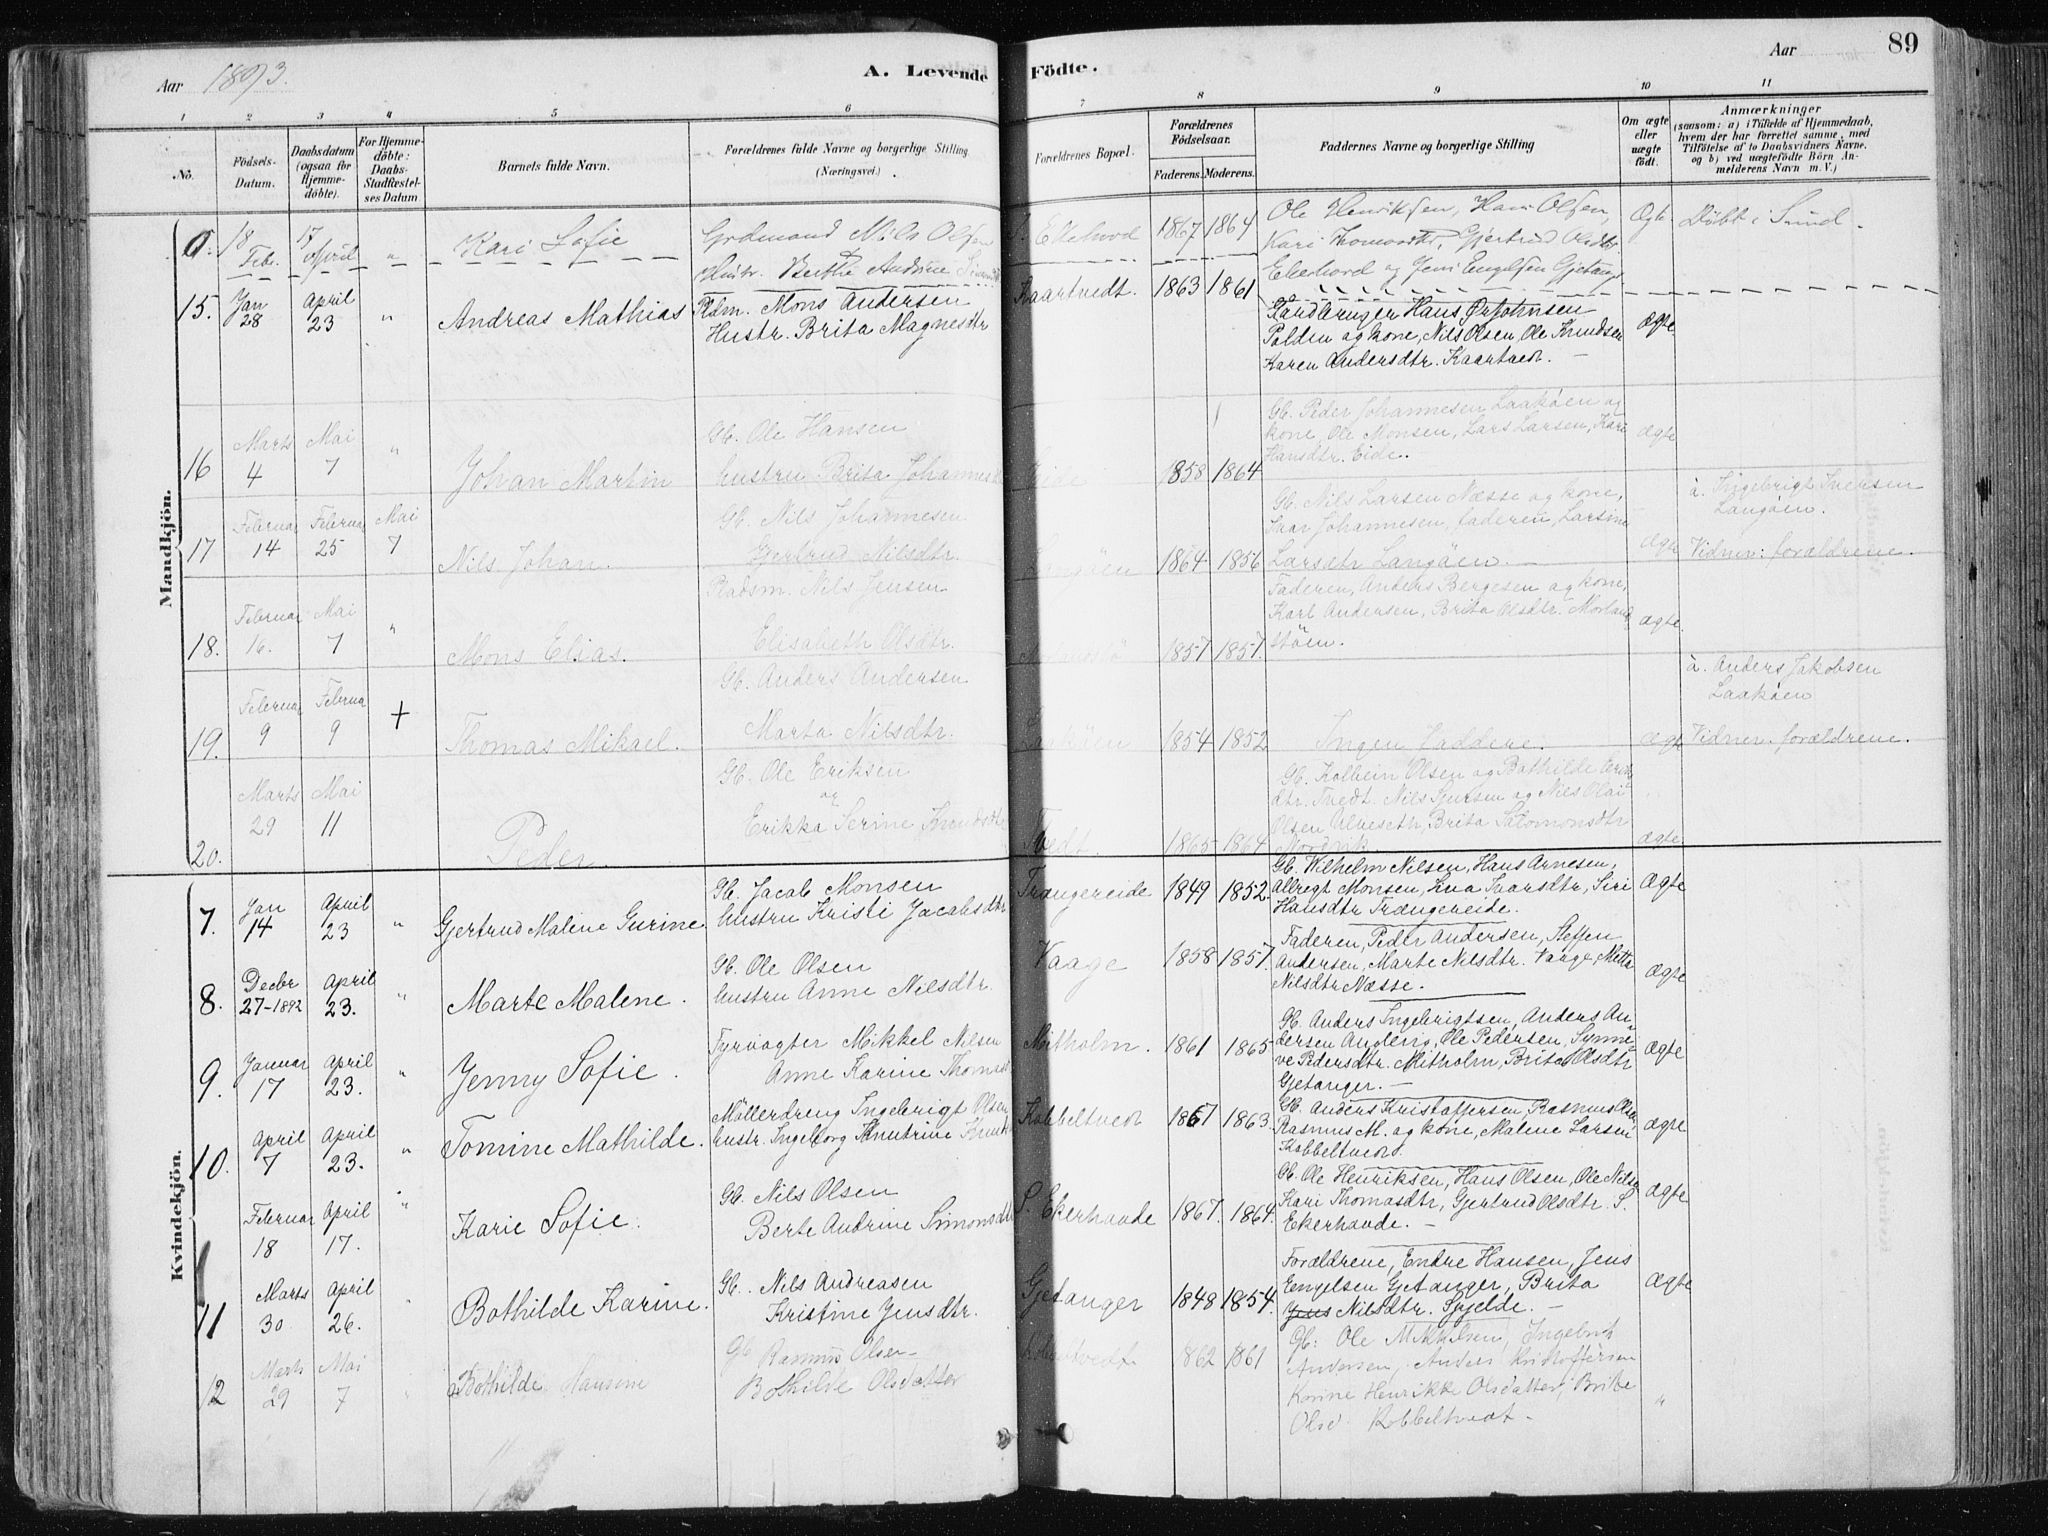 Aar 1893. A. Levende Födte. Aar 89
1 2 3 4 5 6 7 8 9 10 11
No. Födsels-Datum. Daabsdatum (ogsaa for Hjemmedöbte). For Hjemmedöbte: Daabs-Stadfæstelses Datum Barnets fulde Navn. Forældrenes fulde Navne og borgerlige Stilling (Næringsvei). Forældrenes Bopæl. Forældrenes Födselsaar. Faderens. Moderens. Faddernes Navne og borgerlige Stilling Om ægte eller uægte födt. Anmærkninger (saasom: a) i Tilfælde af Hjemmedaab, hvem der har forrettet samme, med Tilföielse af to Daabsvidners Navne, og b) ved uægtefödte Börn Anmelderens Navn m. V.)
Mandkjön.
18 Feb. 17 April " Kari Sofie Nils Olsen 1867 1864 Ole Henriksen, Hans Olsen, Ægte Döbt i Sund.
Hustr. Berthe Andrine Kari Thomasdtr, Gjertrud Olsdtr
Ekerhovd og Jens Engelsen Gjetanger
15. Jan 28 April 23 " Andreas Mathias Pldm. Mons Andersen Kaartvedt. 1863 1861 Hans
Hustr. Brita Magnesdtr Polden og kone, Nils Olsen, Ole Knudsen ægte
Karen Andersdtr. Kaartvedt. —
16 Marts 4 Mai 7 " Johan Martin Gb. Ole Hansen Eide 1858 1864 Gb. Peder Johannesen Laaköen og
hustru Brita kone, Ole Monsen, Lars Larsen, Kari ægte
Hansdtr. Eide.
17 Februar 14 Februar 25 Mai 7 Nils Johan. Gb. Nils Johannesen Langöen 1864 1856 Gb. Nils Larsen Næsse og kone, à. Ingebrigt Iversen Langöen.
Gjertrud Nilsdtr. Johannesen, faderen, Larsine ægte Vidner: forældrene.
Larsdtr Langöen. —
18. Februar 16. Mai 7 " Mons Elias. Pladsm. Nils Jensen 1857 1857. Faderen, Anders Bergesen og kone,
Elisabeth Olsdtr. Karl Andersen, Brita Olsdtr. ægte.
19. Februar 9 Februar 9 + Thomas Mikael. Gb. Anders Andersen Laaköen 1854 1852 Ingen Faddere. ægte à. Anders Jakobsen Laaköen
Marta Nilsdtr. Vidner: forældrene.
20. Marts 29 Mai 11 Peder. Gb. Ole Eriksen Tvedt. 1865 1864 Gb. Kolbein Olsen og Bathilde
og dtr. Tvedt. Nils Sjursen og Nils Olai
Erikka Serine Olsen Ulveseth, Brita Salomonsdtr ægte
Kvindekjön.
7. Jan 14 April 23 " Gjertrud Malene Gurine. Gb. Jacob Monsen Trængereide 1849 1852. Gb. Wilhelm Nilsen, Hans Arnesen, Ægte
hustru Kristi Jacobsdtr Allregt Monsen, Siri
Hansdtr Trængereide.
8. Decbr 27-1892 April 23. " Marte Malene. Gb. Ole Olsen Vaage 1858 1857. Faderen, Peder Andersen, Steffen
hustru Anne Nilsdtr. Andersen, Marte Nilsdtr. Vaage, Metta ægte
Nilsdtr Næsse.
9. Januar 17 April 23. " Jenny Sofie. Fyrvogter Mikkel Nilsen Mitholm. 1861 1865 Gb. Anders Ingebrigtsen, Anders An-
Anne Karine dersen Angleng, Ole Pedersen, Synne- ægte
ve Pedersdtr. Mitholm, Brita Olsdtr
Gjetanger. —
10. April 7 April 23. " Tomine Mathilde. Möllerdreng Ingebrigt Olsen Kobbeltvedt 1867 1863. Gb. Anders Kristaffersen, Rasmus Olsen,
hustr. Ingeborg Knutrine Rasmus M. og kone, Malene Larsen ægte
Kobbeltvedt.
Februar 18 April 17. " Karie Sofie. Gb. Nils Olsen S. Ekerhavde 1867. 1864. Gb. Ole Henriksen, Hans Olsen, Ole Nilsen ægte
Berte Andrine Simonsdtr Kari Thomasdtr, Gjertrud Olsdtr. S.
Ekerhavde. —
11 Marts 30. April 26. Bothilde Karine. Gb. Nils Andreasen Gjetanger 1848 1854. Forældrene, Endre Hansen, Jens Ægte
Kristine Jensdtr. Eengelsen Gjetanger, Brita
Jens Nilsdtr. Spjelde. —
12 Marts 29 Mai 7 " Bothilde Hansine Gb Rasmus Olsen Kobbeltvedt 1862 1861 Gb: Ole Mikkelsen, Ingebrigt
Bothilde Olsdatter Andersen, Anders Kristoffersen
Karine Henrikke Olsdatter, Brite "
Olsd. Kobbeltvedt -